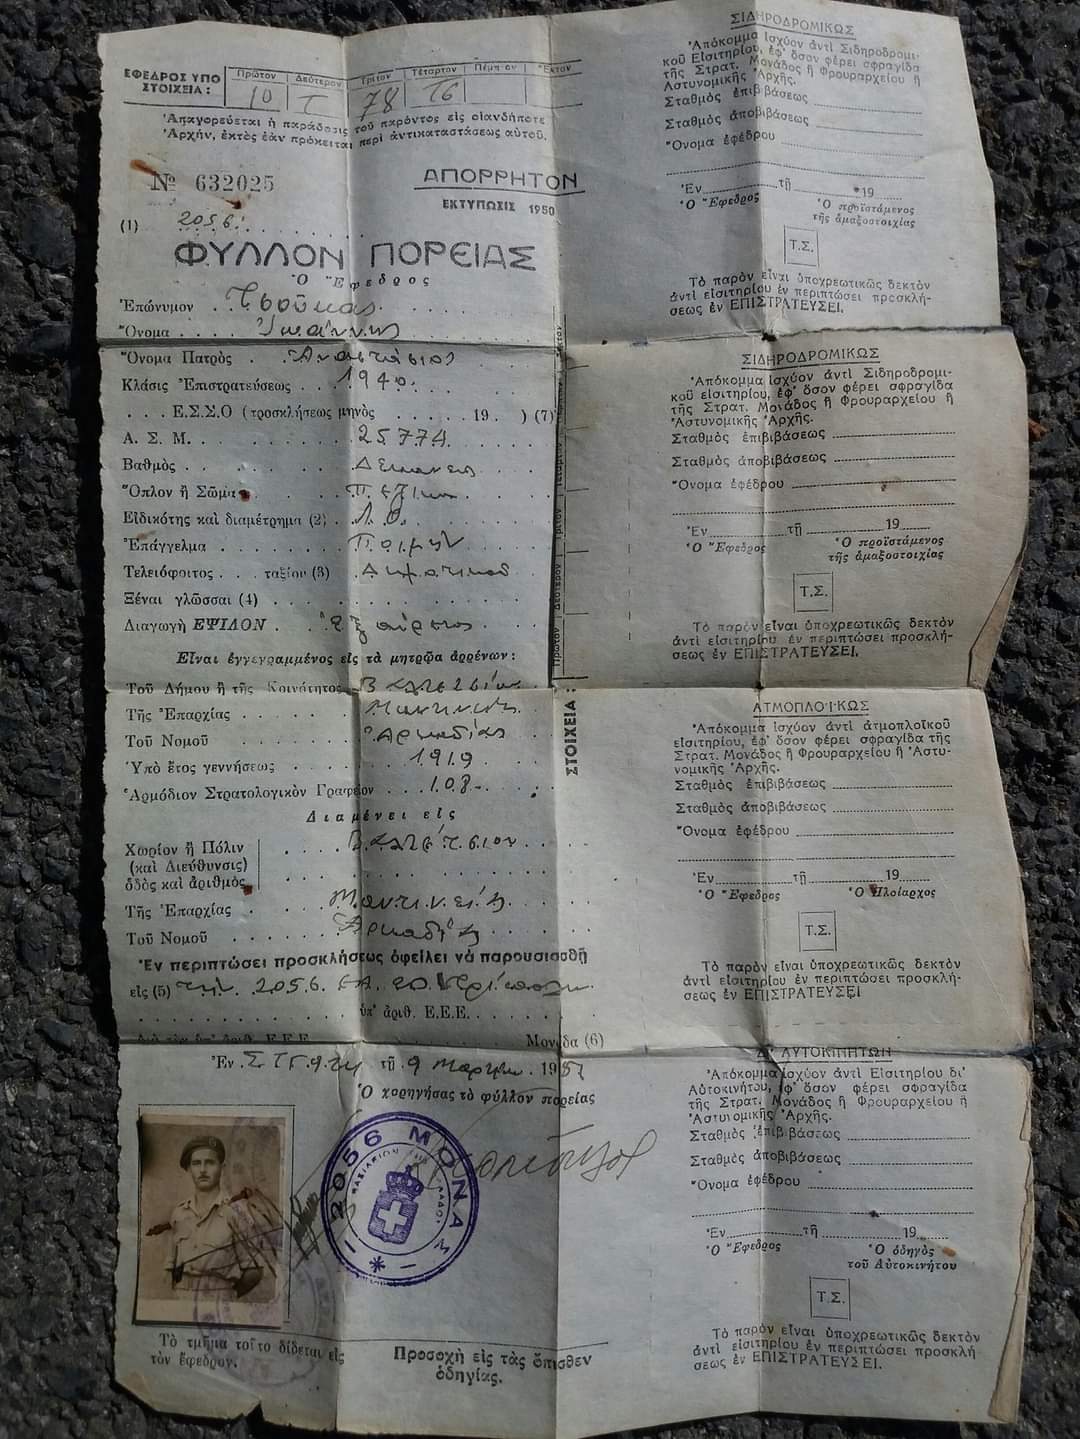 ΕΦΕΔΡΟΣ ΥΠΟ ΣΤΟΙΧΕΙΑ :
Πρῶτον Δεύτερον Τρίτον Τέταρτον Πέμπτον Ἕκτον
10 Τ 78 ΤΘ
Ἀπαγορεύεται ἡ παράδοσις τοῦ παρόντος εἰς οἱανδήποτε
Ἀρχήν, ἐκτὸς ἐὰν πρόκειται περὶ ἀντικαταστάσεως αὐτοῦ.
№ 632025
ΑΠΟΡΡΗΤΟΝ
ΕΚΤΥΠΩΣΙΣ 1950
(1) 2056
ΦΥΛΛΟΝ ΠΟΡΕΙΑΣ
Ὁ Ἔφεδρος
Ἐπώνυμον Τσούκας
Ὄνομα Ἰωάννης
Ὄνομα Πατρὸς Ἀναστάσιος
Κλάσις Ἐπιστρατεύσεως 1940
Ε.Σ.Σ.Ο (προσκλήσεως μηνὸς 19 ) (7)
Α. Σ. Μ. 25774
Βαθμὸς Δεκανεὺς
Ὅπλον ἢ Σῶμα Πεζικὸν
Εἰδικότης καὶ διαμέτρημα (2)
Ἐπάγγελμα Ποιμὴν
Τελειόφοιτος ταξίου (3) Δημοτικοῦ
Ξέναι γλῶσσαι (4)
Διαγωγὴ ΕΨΙΛΟΝ Ἐξαίρετος
Εἶναι ἐγγεγραμμένος εἰς τὰ μητρῷα ἀρρένων :
Τοῦ Δήμου ἢ τῆς Κοινότητος Βαλτετσίου
Τῆς Ἐπαρχίας Μαντινείας
Τοῦ Νομοῦ Ἀρκαδίας
Ὑπὸ ἔτος γεννήσεως 1919
Ἁρμόδιον Στρατολογικὸν Γραφεῖον 108
Διαμένει εἰς
Χωρίον ἢ Πόλιν
(καὶ Διεύθυνσις)
ὁδὸς καὶ ἀριθμὸς
Βαλτέτσιον
Τῆς Ἐπαρχίας Μαντινείας
Τοῦ Νομοῦ Ἀρκαδίας
Ἐν περιπτώσει προσκλήσεως ὀφείλει νὰ παρουσιασθῇ
εἰς (5) τὴν 2056 Τρίπολιν
ὑπ' ἀριθ. Ε.Ε.Ε.
Μονάδα (6)
Ἐν Σ.Τ.Γ. τῇ 9 Μαρτίου 195
Ὁ χορηγήσας τὸ φύλλον πορείας
2056 ΜΟΝΑΣ
ΒΑΣΙΛΕΙΟΝ ΤΗΣ ΕΛΛΑΔΟΣ
Τὸ τμῆμα τοῦτο δίδεται εἰς
τὸν ἔφεδρον.
Προσοχὴ εἰς τὰς ὄπισθεν
ὁδηγίας.
ΣΤΟΙΧΕΙΑ :
Πρῶτον Δεύτερον Τρίτον Τέταρτον
ΣΙΔΗΡΟΔΡΟΜΙΚΩΣ
Ἀπόκομμα ἰσχύον ἀντὶ Σιδηροδρομι-
κοῦ Εἰσιτηρίου, ἐφ' ὅσον φέρει σφραγῖδα
τῆς Στρατ. Μονάδος ἢ Φρουραρχείου ἢ
Ἀστυνομικῆς Ἀρχῆς.
Σταθμὸς ἐπιβιβάσεως
Σταθμὸς ἀποβιβάσεως
Ὄνομα ἐφέδρου
Ἐν τῇ 19
Ὁ Ἔφεδρος Ὁ προϊστάμενος
τῆς ἁμαξοστοιχίας
Τ.Σ.
Τὸ παρὸν εἶναι ὑποχρεωτικῶς δεκτὸν
ἀντὶ εἰσιτηρίου ἐν περιπτώσει προσκλή-
σεως ἐν ΕΠΙΣΤΡΑΤΕΥΣΕΙ.
ΣΙΔΗΡΟΔΡΟΜΙΚΩΣ
Ἀπόκομμα ἰσχύον ἀντὶ Σιδηροδρομι-
κοῦ εἰσιτηρίου, ἐφ' ὅσον φέρει σφραγῖδα
τῆς Στρατ. Μονάδος ἢ Φρουραρχείου ἢ
Ἀστυνομικῆς Ἀρχῆς.
Σταθμὸς ἐπιβιβάσεως
Σταθμὸς ἀποβιβάσεως
Ὄνομα ἐφέδρου
Ἐν τῇ 19
Ὁ Ἔφεδρος Ὁ προϊστάμενος
τῆς ἁμαξοστοιχίας
Τ.Σ.
Τὸ παρὸν εἶναι ὑποχρεωτικῶς δεκτὸν
ἀντὶ εἰσιτηρίου ἐν περιπτώσει προσκλή-
σεως ἐν ΕΠΙΣΤΡΑΤΕΥΣΕΙ.
ΑΤΜΟΠΛΟΪΚΩΣ
Ἀπόκομμα ἰσχύον ἀντὶ ἀτμοπλοϊκοῦ
εἰσιτηρίου, ἐφ' ὅσον φέρει σφραγῖδα τῆς
Στρατ. Μονάδος ἢ Φρουραρχείου ἢ Ἀστυ-
νομικῆς Ἀρχῆς.
Σταθμὸς ἐπιβιβάσεως
Σταθμὸς ἀποβιβάσεως
Ὄνομα ἐφέδρου
Ἐν τῇ 19
Ὁ Ἔφεδρος Ὁ Πλοίαρχος
Τ.Σ.
Τὸ παρὸν εἶναι ὑποχρεωτικῶς δεκτὸν
ἀντὶ εἰσιτηρίου ἐν περιπτώσει προσκλή-
σεως ἐν ΕΠΙΣΤΡΑΤΕΥΣΕΙ
Δ' ΑΥΤΟΚΙΝΗΤΩΝ
Ἀπόκομμα ἰσχύον ἀντὶ Εἰσιτηρίου δι'
Αὐτοκινήτου, ἐφ' ὅσον φέρει σφραγῖδα
τῆς Στρατ. Μονάδος ἢ Φρουραρχείου ἢ
Ἀστυνομικῆς Ἀρχῆς.
Σταθμὸς ἐπιβιβάσεως
Σταθμὸς ἀποβιβάσεως
Ὄνομα ἐφέδρου
Ἐν τῇ 19
Ὁ Ἔφεδρος Ὁ ὁδηγὸς
τοῦ Αὐτοκινήτου
Τ.Σ.
Τὸ παρὸν εἶναι ὑποχρεωτικῶς δεκτὸν
ἀντὶ εἰσιτηρίου ἐν περιπτώσει προσκλή-
σεως ἐν ΕΠΙΣΤΡΑΤΕΥΣΕΙ.